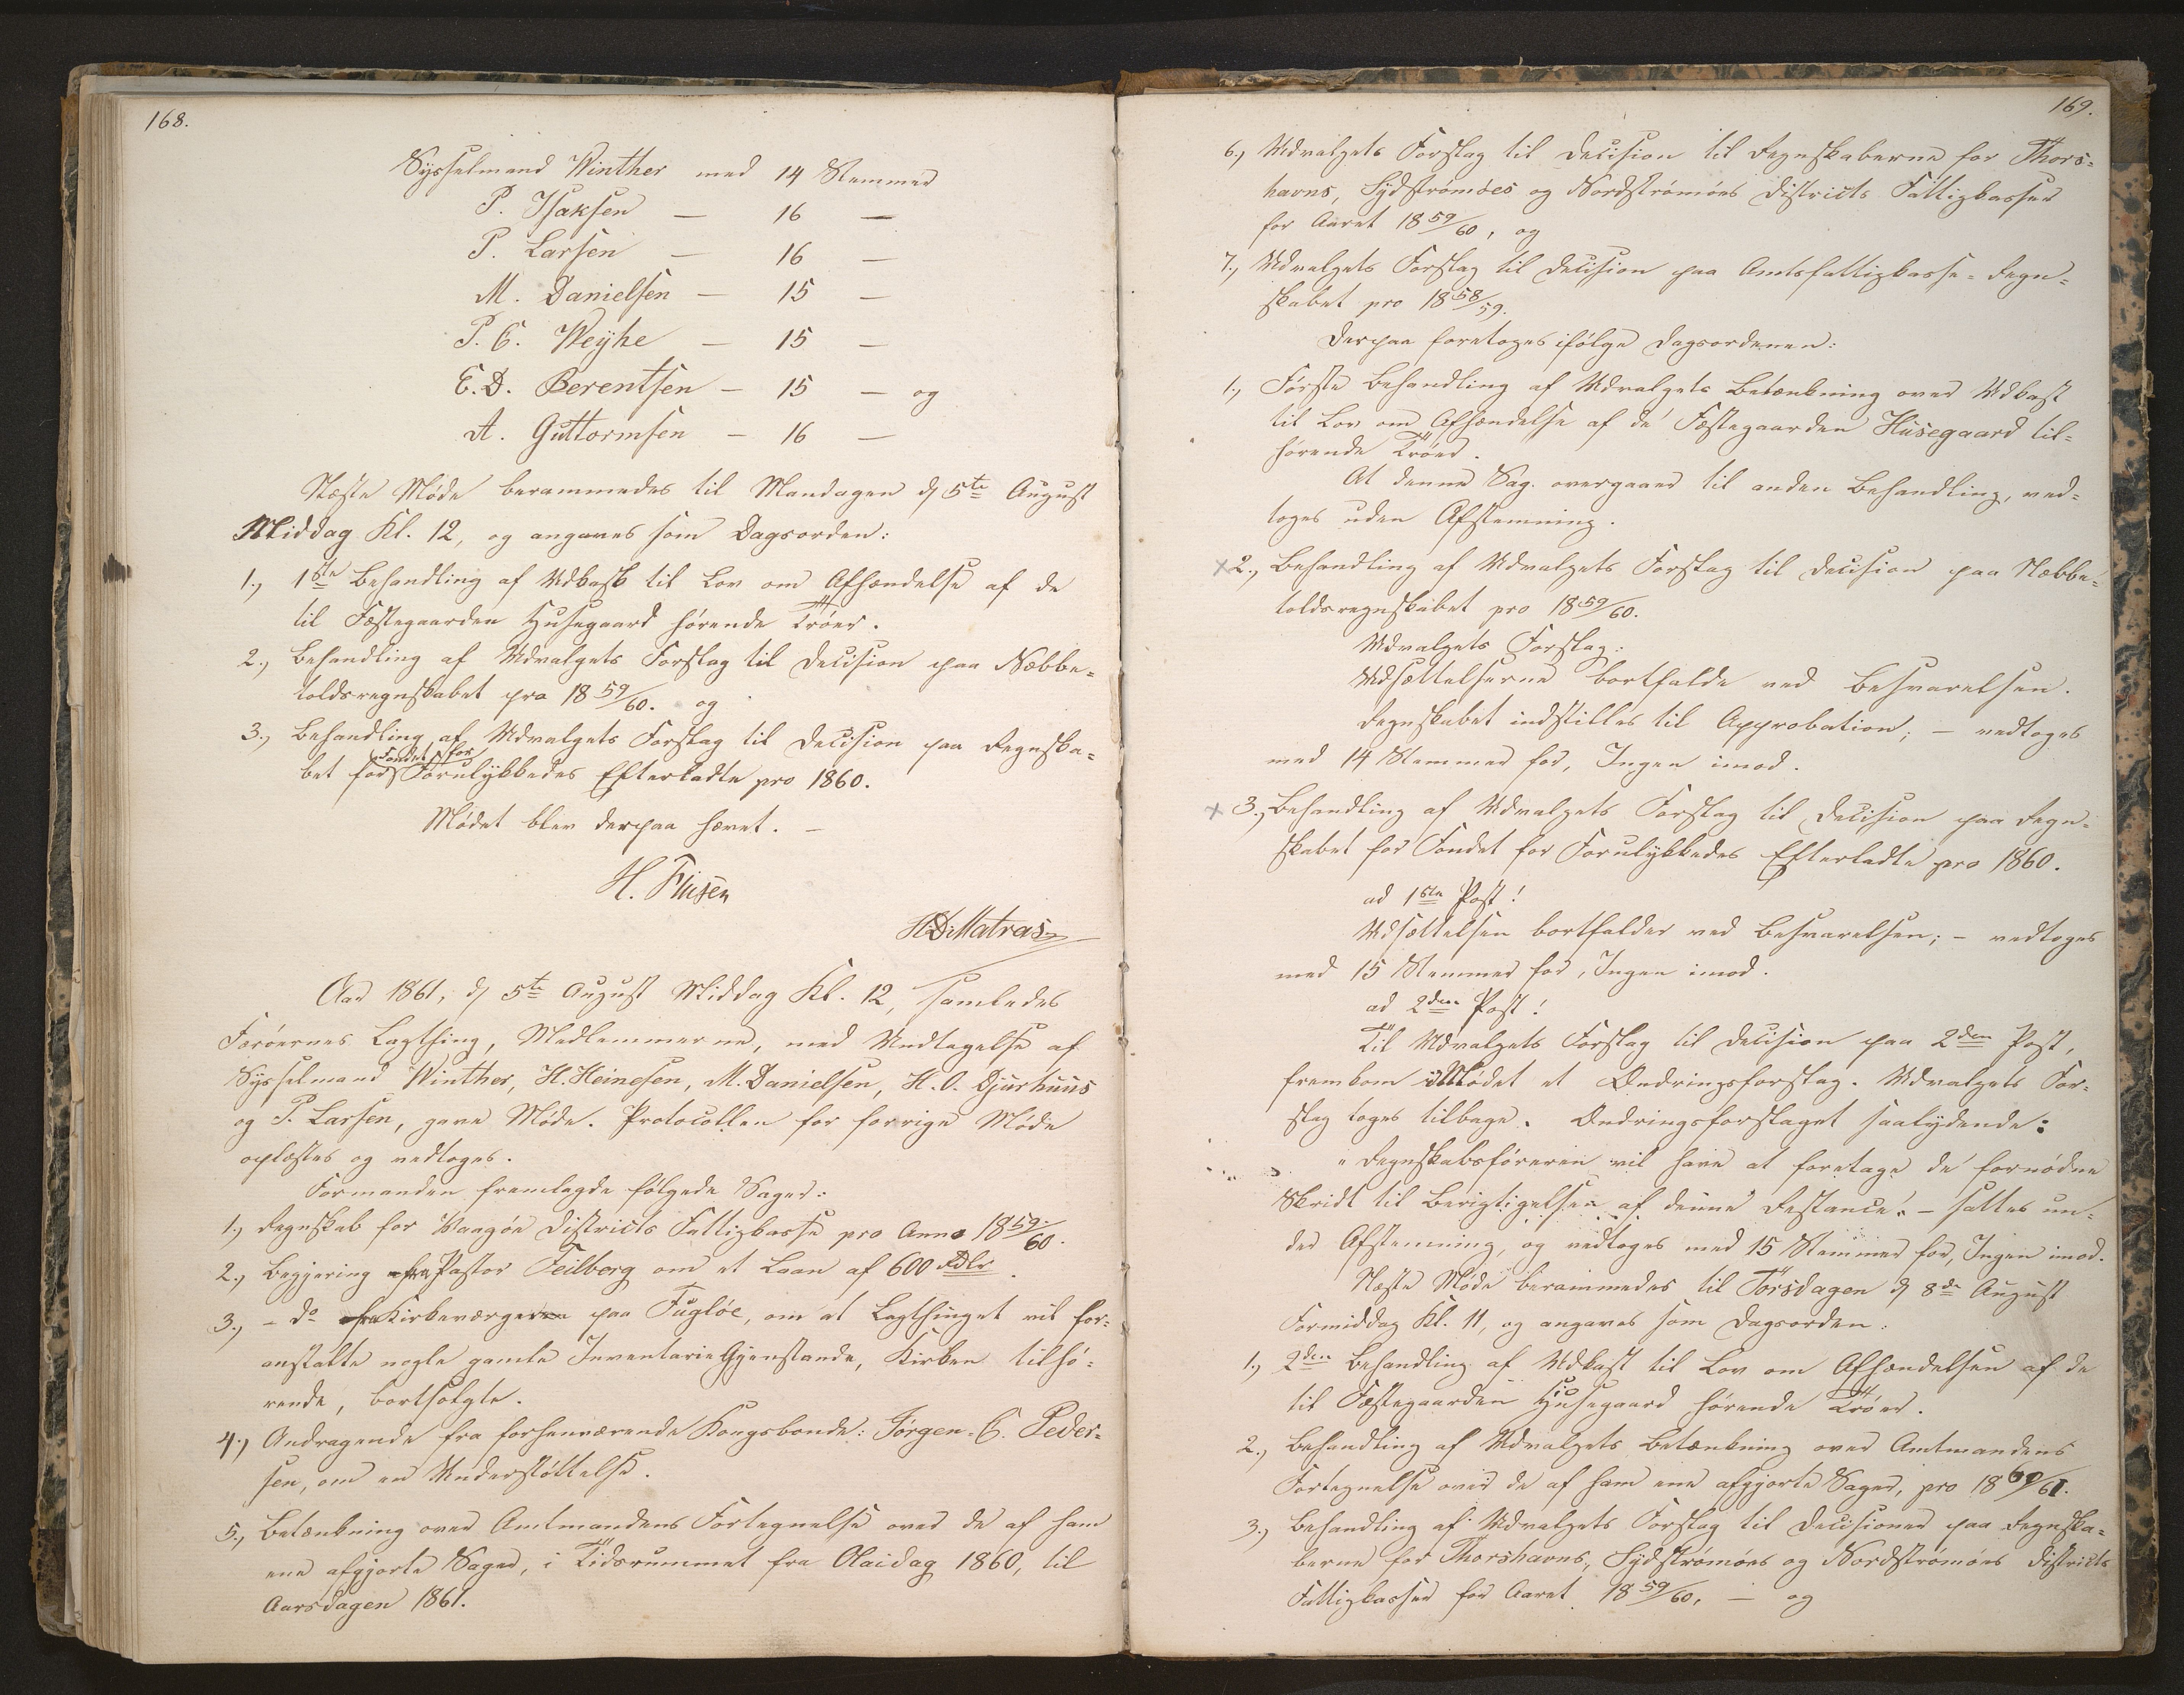 168.
Sysselmand Winther med 14 Stemmer
P. Isaksen — 16 —
P. Larsen — 16 —
M. Danielsen — 15 —
P. C. Weÿhe — 15 —
E. D. Berentsen — 15 — og
A. Guttormsen — 16 —
Næste Møde berammedes til Mandagen d 5te August
Middag Kl. 12, og angaves som Dagsorden:
1., 1ste Behandling af Udkast til Lov om Afhændelse af de
til Fæstegaarden Husegaard hørende Trøer.
2., Behandling af Udvalgets Forslag til Decision paa Næbbe-
toldsregnskabet pro 1859/60. og
3., Behandling af Udvalgets Forslag til Decision paa Regnska-
Fondet for
bet for Forulykkedes Efterladte pro 1860.
Mødet blev derpaa hævet. —
HD Matras
Aar 1861, d 5te August Middag Kl. 12, samledes
Færøernes Lagthing, Medlemmerne, med Undtagelse af
Sysselmand Winther, H. Heinesen, M. Danielsen, H. O. Djurhuus
og P. Larsen, gave Møde. Protocollen for forrige Møde
oplæstes og vedtoges.
Formanden fremlagde følgende Sager:
1., Regnskab for Vaagøe Districts Fattigkasse pro Anno 1859/60.
2., Begjering fra Pastor Feilberg om et Laan af 600 Rdlr.
3., — do fra Kirkeværgeren paa Fugløe, om at Lagthinget vil for-
anstalte nogle gamle Inventarie Gjenstande, Kirken tilhø-
rende, bortsolgte.
4., Andragende fra forhenværende Kongsbonde: Jørgen C. Peder-
sen, om en Understøttelse.
5., Betænkning over Amtmandens Fortegnelse over de af ham
ene afgjorte Sager, i Tidsrummet fra Olaidag 1860, til
Aarsdagen 1861.
169.
6., Udvalgets Forslag til Decision til Regnskaberne for Thors-
havns, Sydstrømøes og Nordstrømøes Districts Fattigkasser
for Aaret 1859/60, og
7., Udvalgets Forslag til Decision paa Amtsfattigkasse-Regn-
skabet pro 1858/59.
Derpaa foretoges ifølge Dagsordenen:
1., Første Behandling af Udvalgets Betænkning over Udkast
til Lov om Afhændelse af de Fæstegaarden Husegaard til-
hørende Trøer.
At denne Sag overgaaer til anden Behandling, ved-
toges uden Afstemning.
x 2., Behandling af Udvalgets Forslag til Decision paa Næbbe-
toldsregnskabet pro 1859/60.
Udvalgets Forslag:
Udsættelserne bortfalde ved Besvarelsen.
Regnskabet indstilles til Approbation; — vedtoges
med 14 Stemmer for, Ingen imod.
x 3., Behandling af Udvalgets Forslag til Decision paa Regn-
skabet for Fondet for Forulykkedes Efterladte pro 1860.
ad 1ste Post!
Udsættelsen bortfalder ved Besvarelsen; — vedtoges
med 15 Stemmer for, Ingen imod.
ad 2den Post!
Til Udvalgets Forslag til Decision paa 2den Post,
fremkom i Mødet et Ændringsforslag. Udvalgets For-
slag toges tilbage. Ændringsforslaget saalydende:
"Regnskabsføreren vil have at foretage de fornødne
Skridt til Berigtigelsen af denne Restance". — sattes un-
der Afstemning, og vedtoges med 15 Stemmer for, Ingen imod.
Næste Møde berammedes til Torsdagen d 8de August
Formiddag Kl. 11, og angaves som Dagsorden:
1., 2den Behandling af Udkast til Lov om Afhændelsen af de
til Fæstegaarden Husegaard hørende Trøer.
2., Behandling af Udvalgets Betænkning over Amtmandens
Fortegnelse over de af ham ene afgjorte Sager, pro 1860/61.
3., Behandling af Udvalgets Forslag til Decisioner paa Regnska-
berne for Thorshavns, Sydstrømøes og Nordstrømøes Districts
Fattigkasser for Aaret 1859/60, — og